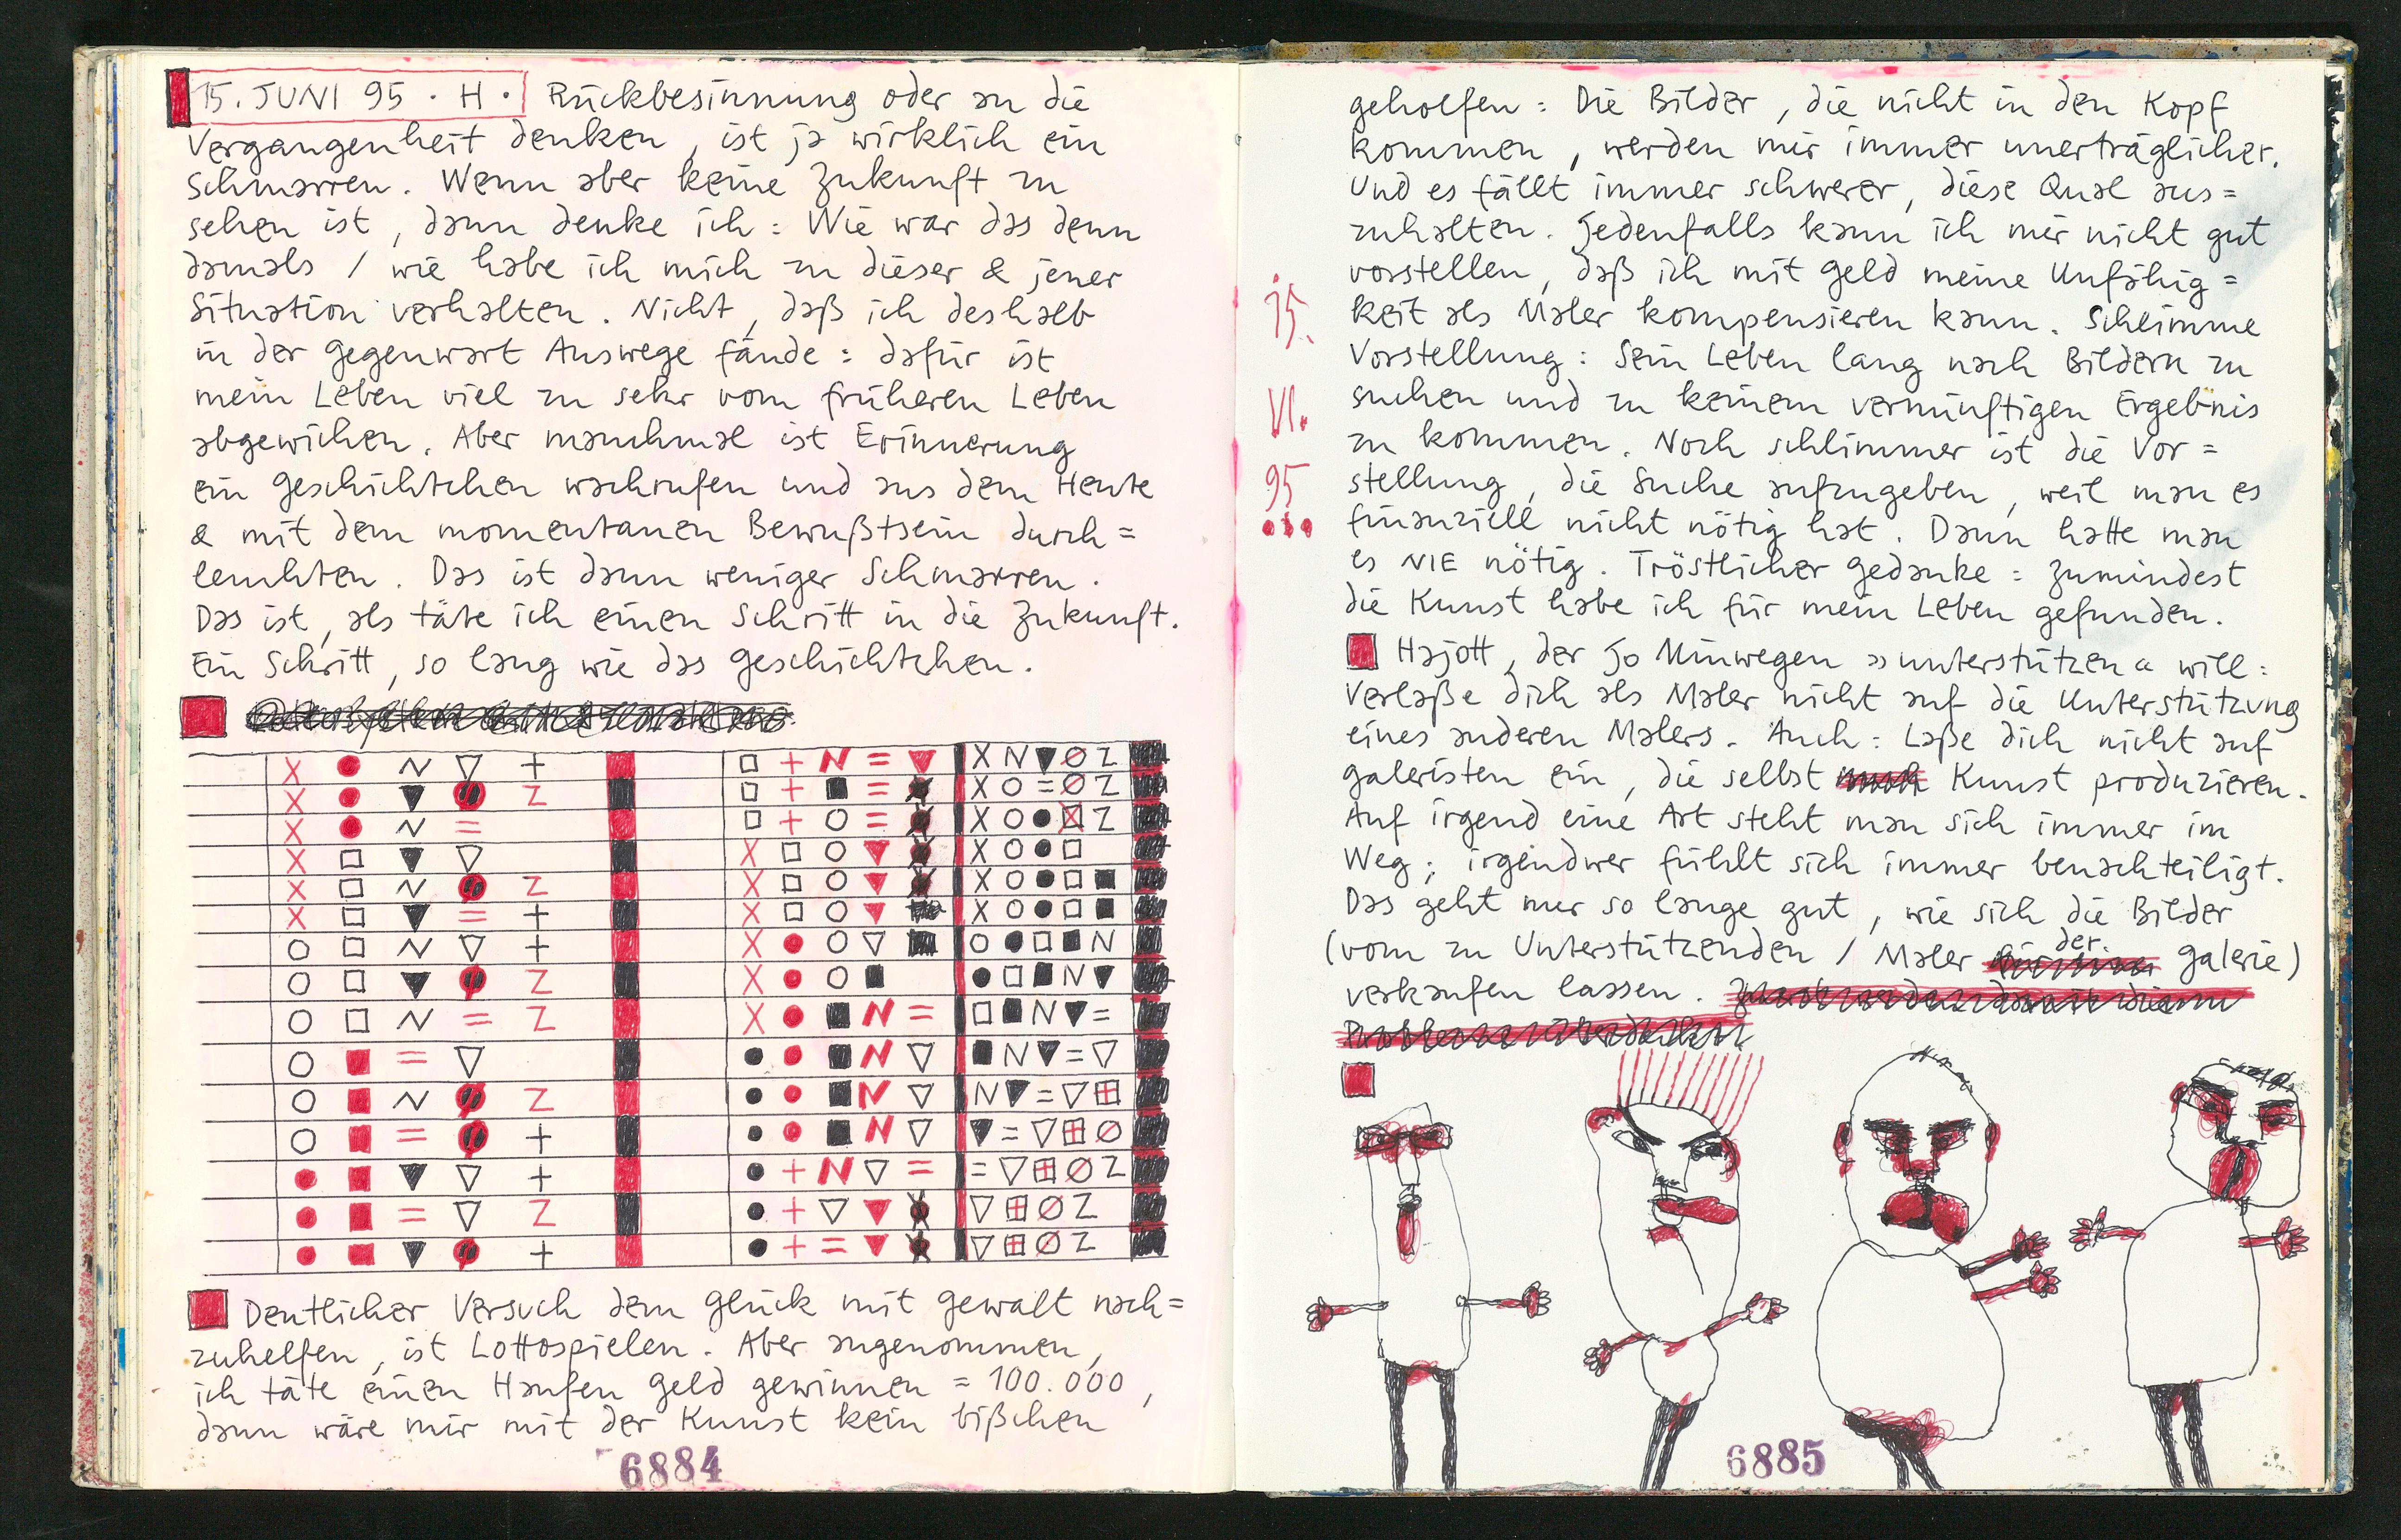 15. JUNI 95 · H · Rückbesinnung oder an die
Vergangenheit denken, ist ja wirklich ein
Schmarren. Wenn aber keine Zukunft zu
sehen ist, dann denke ich: Wie war das denn
damals / wie habe ich mich zu dieser & jener
Situation verhalten. Nicht, daß ich deshalb
in der Gegenwart Auswege fände: dafür ist
mein Leben viel zu sehr vom früheren Leben
abgewichen. Aber manchmal ist Erinnerung
ein Geschichtchen wachrufen und aus dem Heute
& mit dem momentanen Bewußtsein durch=
leuchten. Das ist dann weniger Schmarren.
Das ist, als täte ich einen Schritt in die Zukunft.
Ein Schritt, so lang wie das Geschichtchen.
X ● N ▽ + □ + N = ▼ X N ▼ Ø Z
X ● ▼ Z □ + ■ = X O = Ø Z
X ● N = □ + O = X O ● Z
X □ ▼ ▽ X □ O ▼ X O ● □
X □ N Z X □ O ▼ X O ● □ ■
X □ ▼ = + X □ O ▼ X O ● □ ■
O □ N ▽ + X ● O ▽ ■ O ● □ ■ N
O □ ▼ Z X ● O ■ ● □ ■ N ▼
O □ N = Z X ● ■ N = □ ■ N ▼ =
O ■ = ▽ ● ● ■ N ▽ ■ N ▼ = ▽
O ■ N Z ● ● ■ N ▽ N ▼ = ▽ ⊞
O ■ = + ● ● ■ N ▽ ▼ = ▽ ⊞ Ø
● ■ ▼ ▽ + ● + N ▽ = = ▽ ⊞ Ø Z
● ■ = ▽ Z ● + ▽ ▼ ▽ ⊞ Ø Z
● ■ ▼ + ● + = ▼ ▽ ⊞ Ø Z
Deutlicher Versuch dem Glück mit Gewalt nach=
zuhelfen, ist Lottospielen. Aber angenommen,
ich täte einen Haufen Geld gewinnen = 100.000,
dann wäre mir mit der Kunst kein bißchen
6884
geholfen: Die Bilder, die nicht in den Kopf
kommen, werden mir immer unerträglicher.
Und es fällt immer schwerer, diese Qual aus=
zuhalten. Jedenfalls kann ich mir nicht gut
vorstellen, daß ich mit Geld meine Unfähig=
keit als Maler kompensieren kann. Schlimme
Vorstellung: Sein Leben lang nach Bildern zu
suchen und zu keinem vernünftigen Ergebnis
zu kommen. Noch schlimmer ist die Vor=
stellung, die Suche aufzugeben, weil man es
finanziell nicht nötig hat. Dann hatte man
es NIE nötig. Tröstlicher Gedanke: Zumindest
die Kunst habe ich für mein Leben gefunden.
15.
VI.
95
Hajott, der Jo Minwegen »unterstützen« will:
Verlaße dich als Maler nicht auf die Unterstützung
eines anderen Malers. Auch: Laße dich nicht auf
Galeristen ein, die selbst Kunst produzieren.
Auf irgend eine Art steht man sich immer im
Weg; irgendwer fühlt sich immer benachteiligt.
Das geht nur so lange gut, wie sich die Bilder
(vom zu Unterstützenden / Maler der Galerie)
verkaufen lassen.
6885